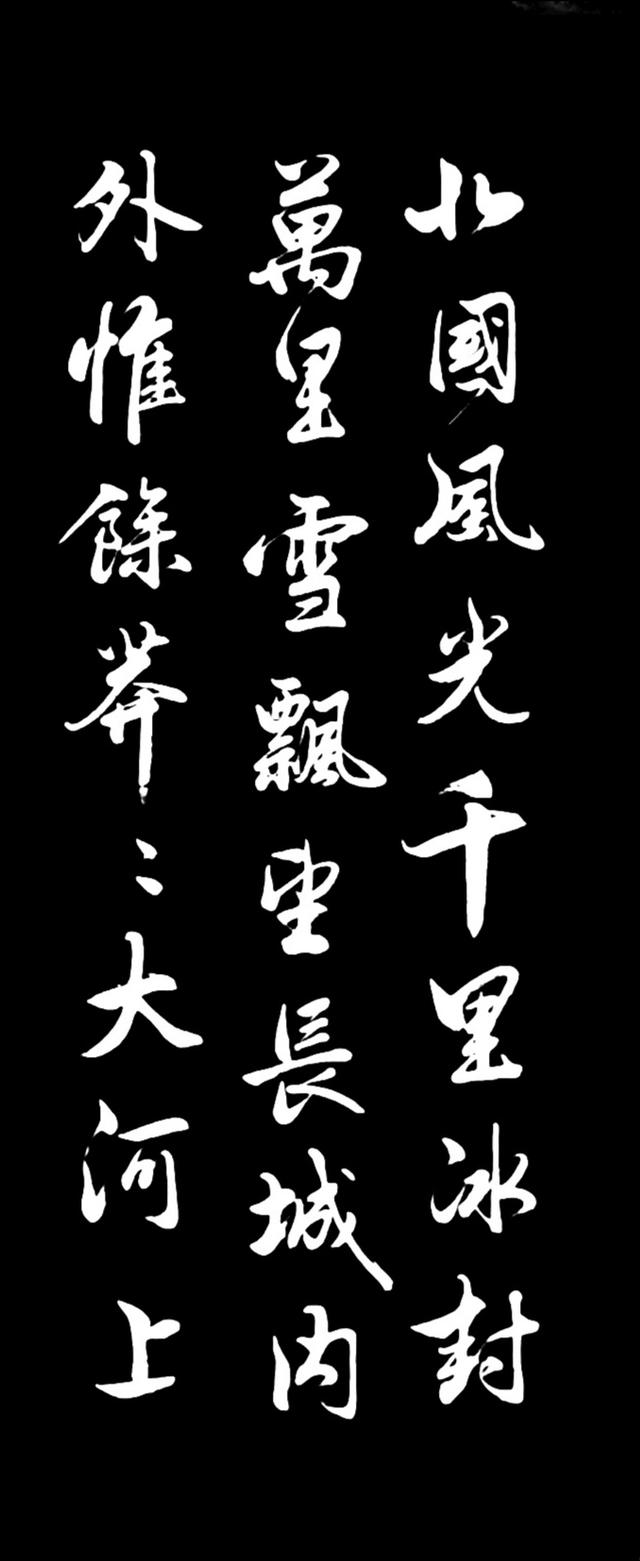 北國風光千里冰封
萬里雪飄望長城內
外惟餘莽〻大河上